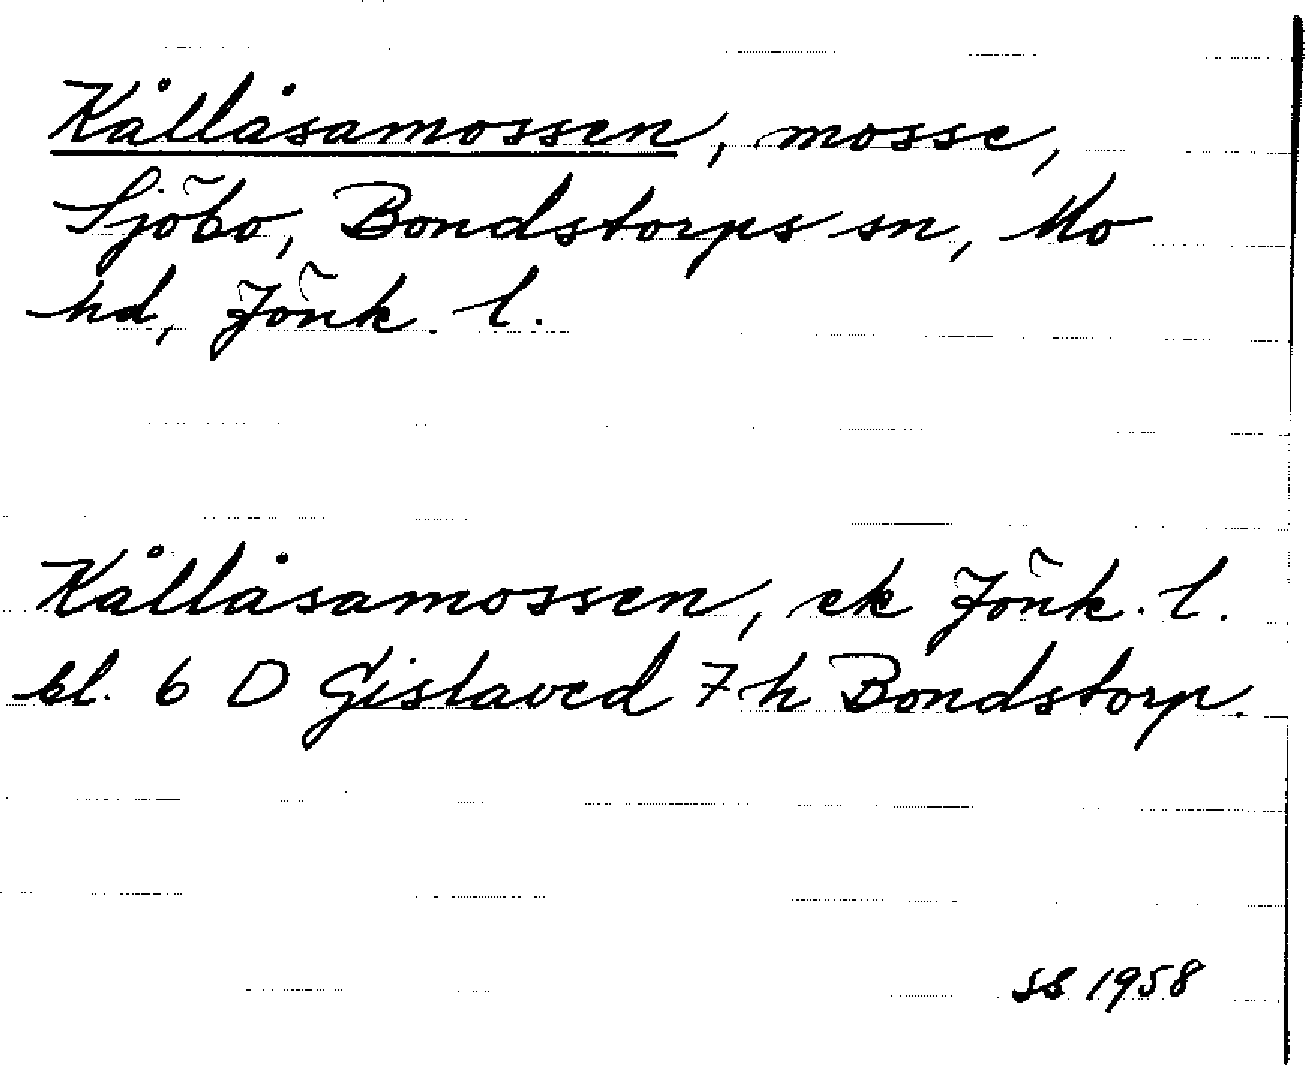 Kållåsamossen, mosse,
Sjöbo, Bondstorps sn, Mo
hd, Jönk. l.
Kållåsamossen, ek Jönk. l.
bl. 6 D Gislaved 7 h Bondstorp.
SS 1958